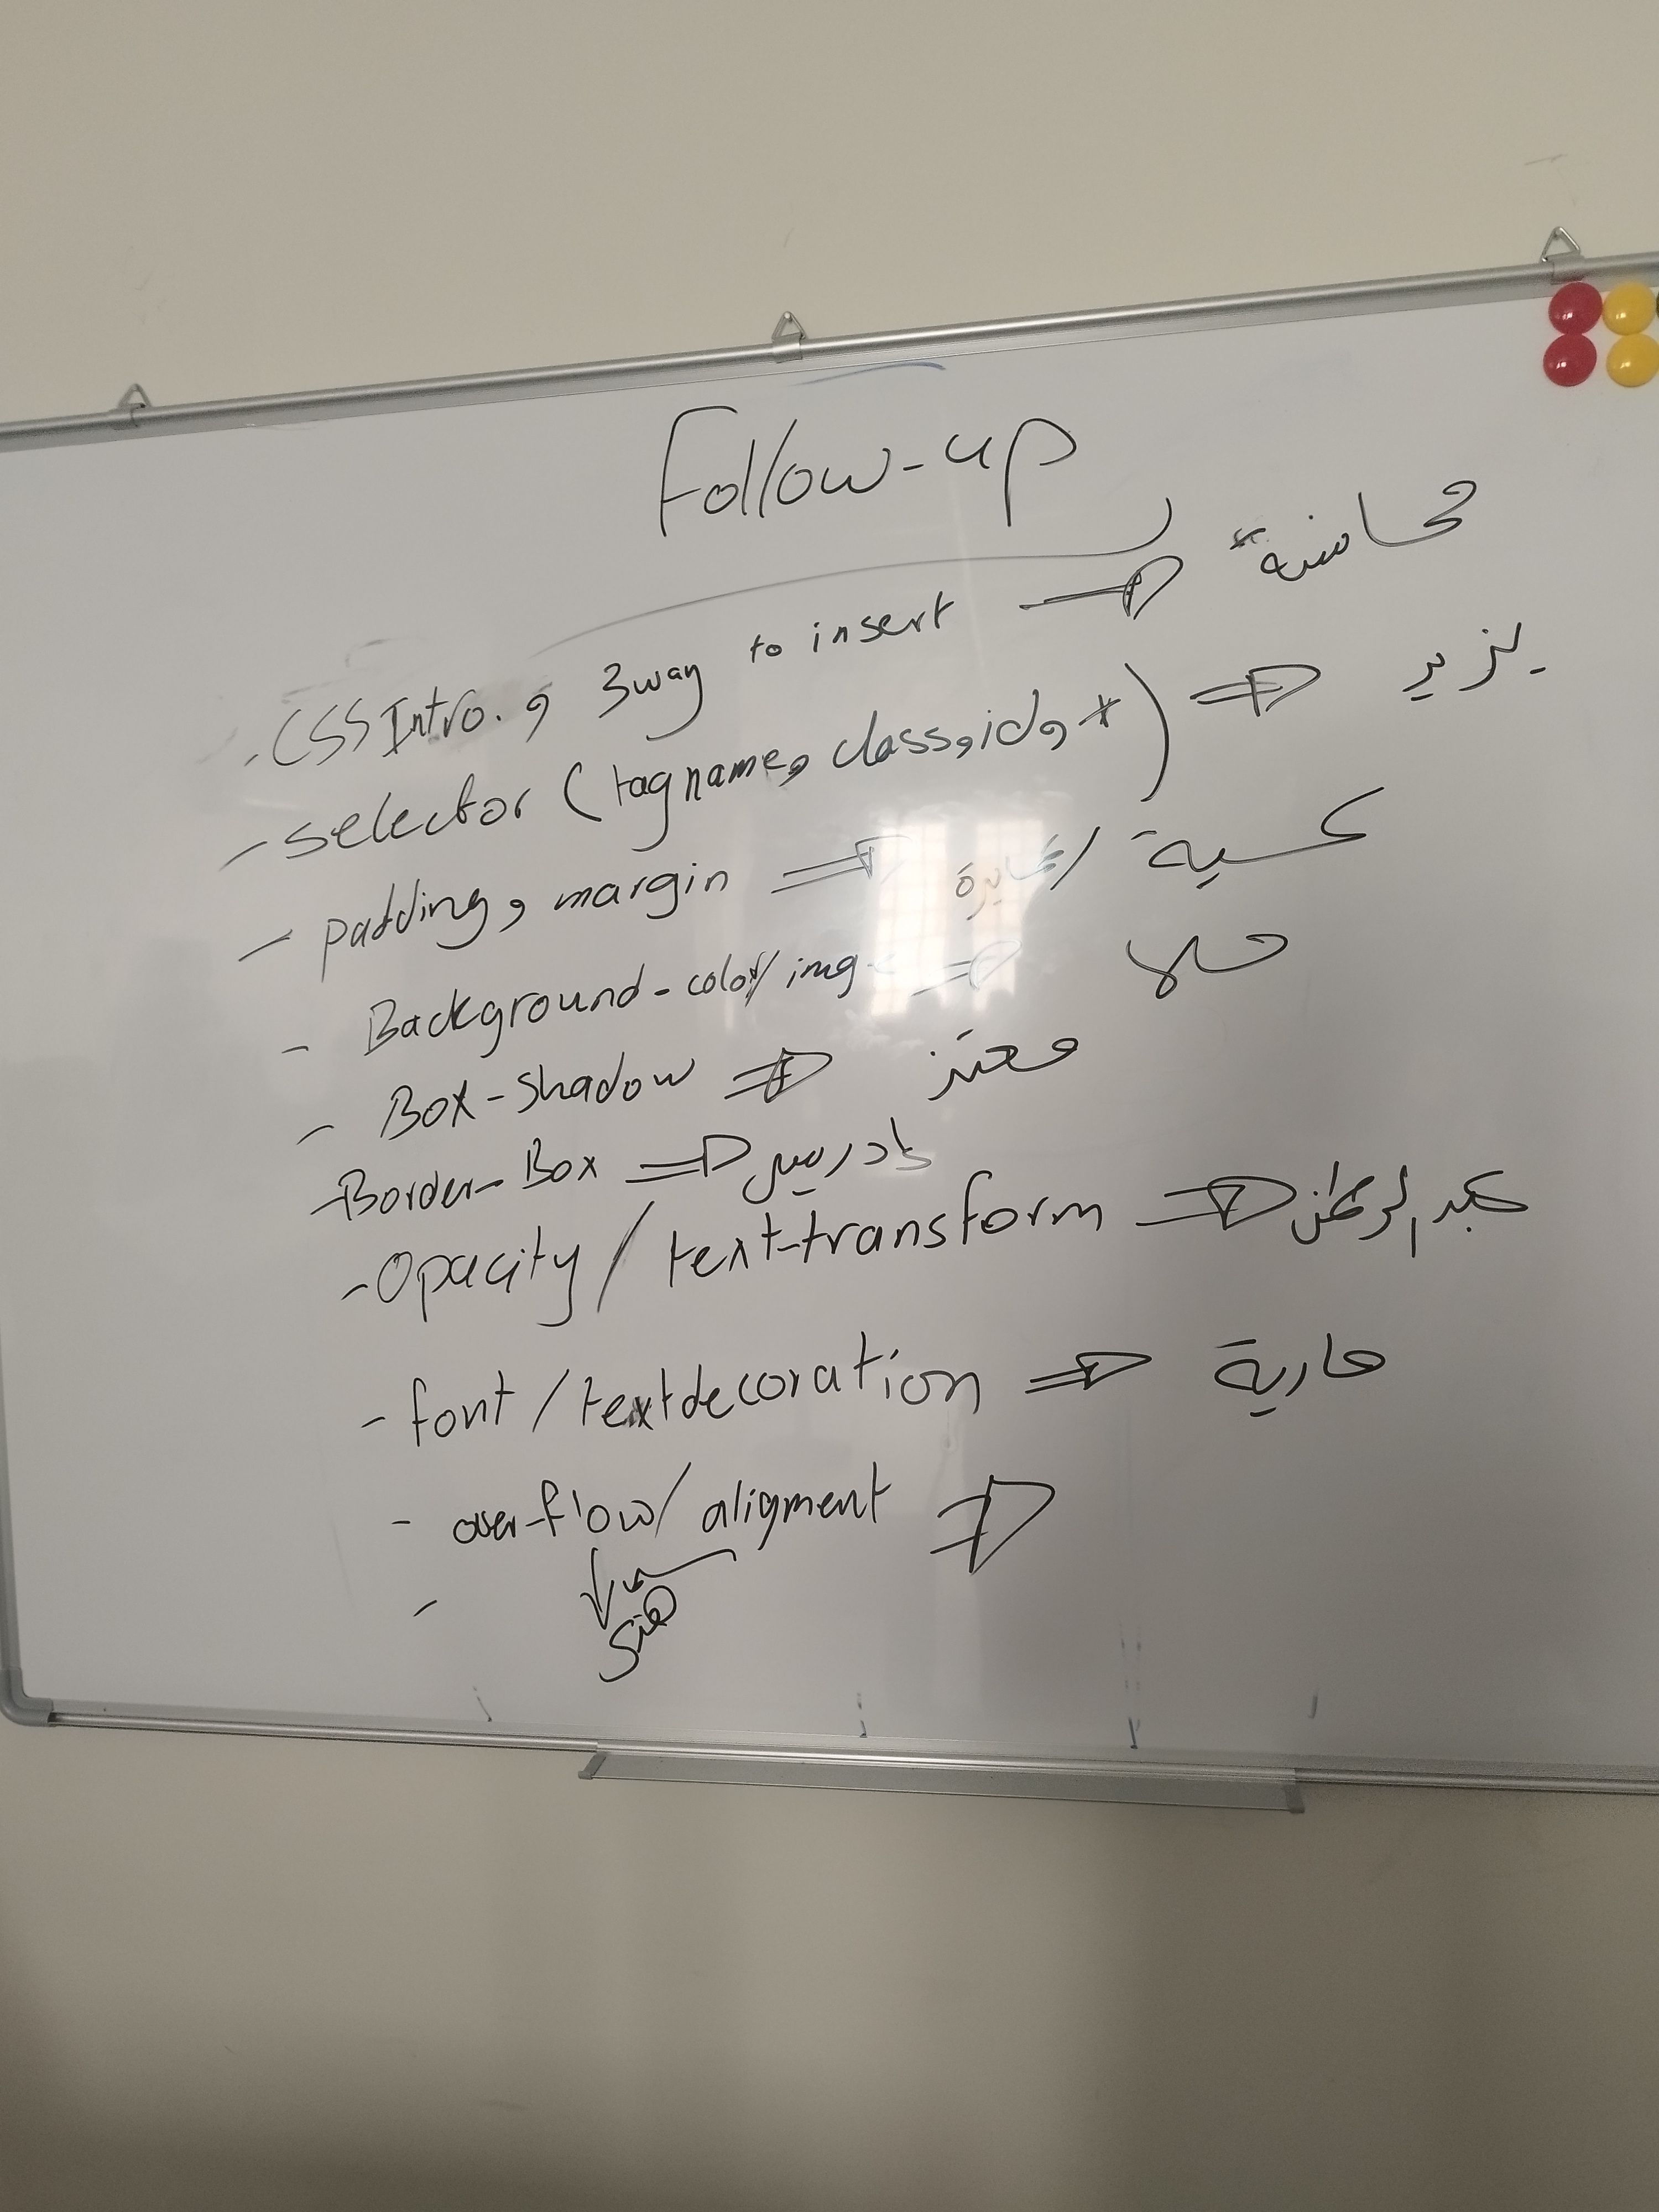 Follow-up
- CSS Intro. , 3 way to insert ⇒ محاسنة
- selector (tag name, class, id, *) ⇒ يزيد
- padding, margin ⇒ / سية
- Background-color/img ⇒ حلا
- Box-shadow ⇒ معتز
- Border-Box ⇒ ادريس
- Opacity / text-transform ⇒ عبدالرحمن
- font / text decoration ⇒ مارية
- over-flow / aligment ⇒
-